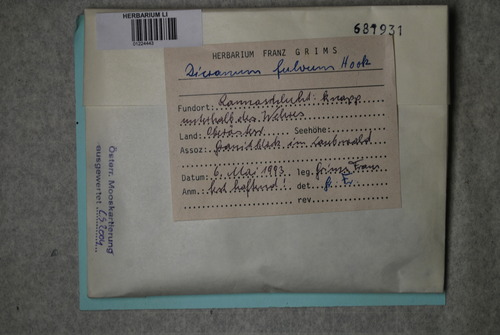 HERBARIUM LI
01224443
681931
HERBARIUM FRANZ GRIMS
Dicranum fulvum Hook
Fundort: Rannaschlucht: knapp
unterhalb des Wehres
Land: Oberöster. Seehöhe:
Assoz: Granitblock im Laubwald
Datum: 6. Mai 1993 leg. Grims Franz
Anm.: det
rev.
Österr. Mooskartierung
ausgewertet